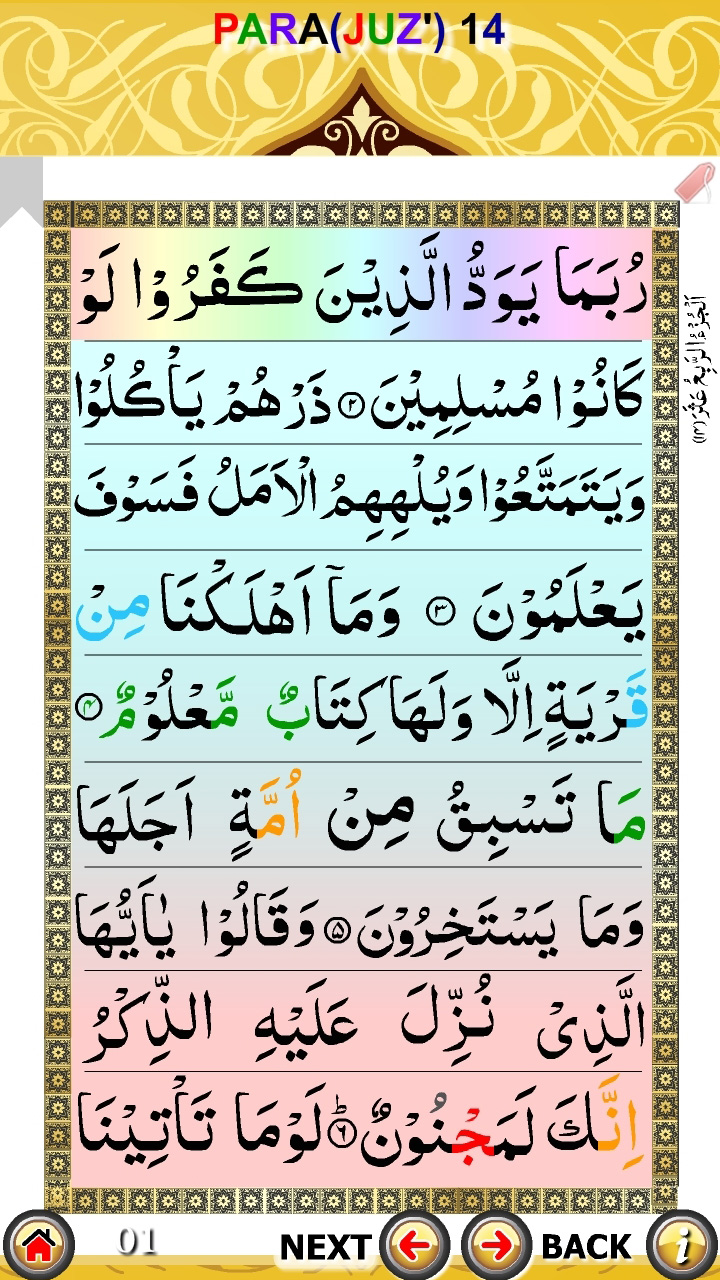 PARA(JUZ') 14
رُبَمَا يَوَدُّ الَّذِيْنَ كَفَرُوْا لَوْ
كَانُوْا مُسْلِمِيْنَ ۝۲ ذَرْهُمْ يَاْكُلُوْا
وَيَتَمَتَّعُوْا وَيُلْهِهِمُ الْاَمَلُ فَسَوْفَ
يَعْلَمُوْنَ ۝۳ وَمَاۤ اَهْلَكْنَا مِنْ
قَرْيَةٍ اِلَّا وَلَهَا كِتَابٌ مَّعْلُوْمٌ ۝۴
مَا تَسْبِقُ مِنْ اُمَّةٍ اَجَلَهَا
وَمَا يَسْتَخِرُوْنَ ۝۵ وَقَالُوْا يٰاَيُّهَا
الَّذِىْ نُزِّلَ عَلَيْهِ الذِّكْرُ
اِنَّكَ لَمَجْنُوْنٌ ۝۶ؕ لَوْمَا تَاْتِيْنَا
اَلْجُزْءُ الرَّابِعُ عَشَرَ (۱۴)
01
NEXT
BACK
i